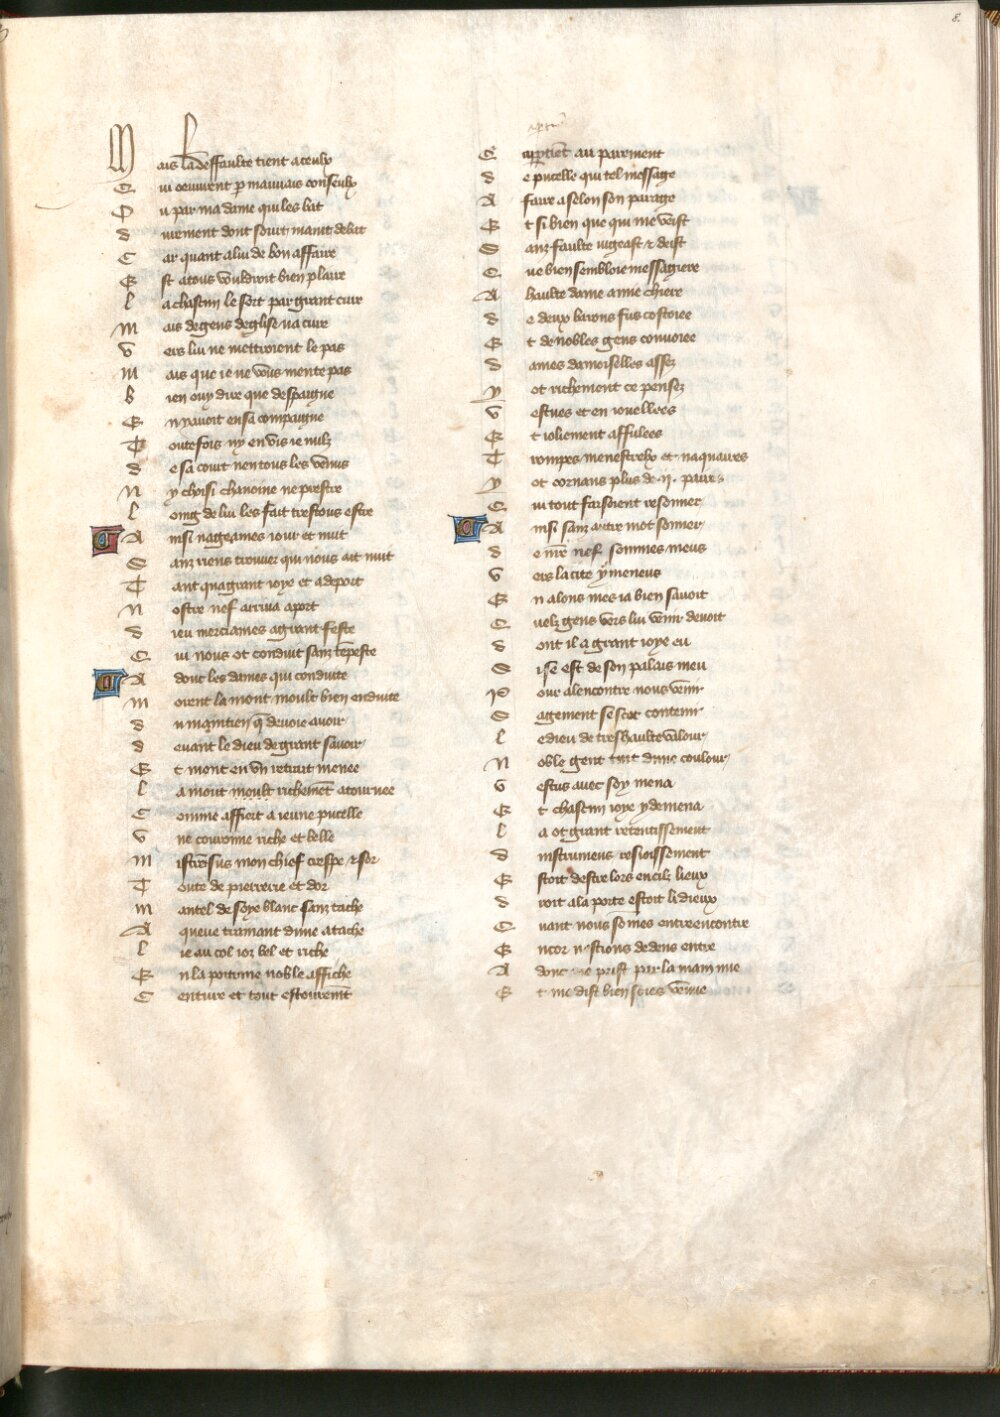 8.
Mais la deffaulte tient a ceulx
Qui oeuvrent p mauvais conseulx
Ou par ma dame qui les bat
durement dont sourt maint debat
Car quant a lui de bon affaire
Est a tous vouldroit bien plaire
la chascun le sert par grant cure
mais de gens deglise na cure
Vers lui ne mettroient le pas
mais que ie ne vous mente pas
bien ouy dire que despaigne
En avoit en sa compaigne
Toutefois ny en vis ie nulz
de sa court nen tous les venus
Ny choisi chanoine ne prestre
loing de lui les fait trestous estre
Ainsi nageames iour et nuit
Sanz riens trouver qui nous ait nuit
Tant qua grant ioye et a deport
Nostre nef arriva a port
dieu merciames a grant feste
Qui nous ot conduit sanz tempeste
Adonc les dames qui conduite
morent la mont moult bien enduite
du maintien q devoie avoir
devant le dieu de grant savoir
Et mont en vn retrait menee
la mont moult richemēt atournee
Comme affiert a ieune pucelle
Vne couronne riche et belle
mistrent sus mon chief crespe & sor
Toute de pierrerie et dor
mantel de soye blanc sanz tache
A queue trainant dune atache
lie au col ior bel et riche
En la poitrine noble affiche
Ceinture et tout estoremēt
Cappartiēt au parement
de pucelle qui tel message
A faire a selon son parage
Et si bien que qui me veist
Sanz faulte iugeast & deist
Que bien sembloie messagiere
A haulte dame amie chiere
de deux barons fus costoiee
Et de nobles gens convoiee
dames damoiselles assez
y ot richement ce pensez
Vestues et en iouellees
Et ioliement affulees
Trompes menestrelx et naquaires
y ot cornans plus de .ii. paires
Qui tout faisoient resonner
Ainsi sanz autre mot sonner
de nre nef sommes meus
Vers la cite y meneus
En alons mes ia bien savoit
Quelz gens vers lui venir devoit
dont il a grant ioye eu
S
Pour alencontre nous venir
Sagement se scet contenir
le dieu de tres haulte valour
Noble gent tout dune coulour
Vestus avec soy mena
Et chascun ioye y demena
la ot grant retentissement
dinstrumens resioissement
Estoit destre lors en cilz lieux
droit a la porte estoit li dieux
Quant nous somes entreencontre
Encor nestions dedens entre
Adonc me prist par la main nue
Et me dist bien soies venue